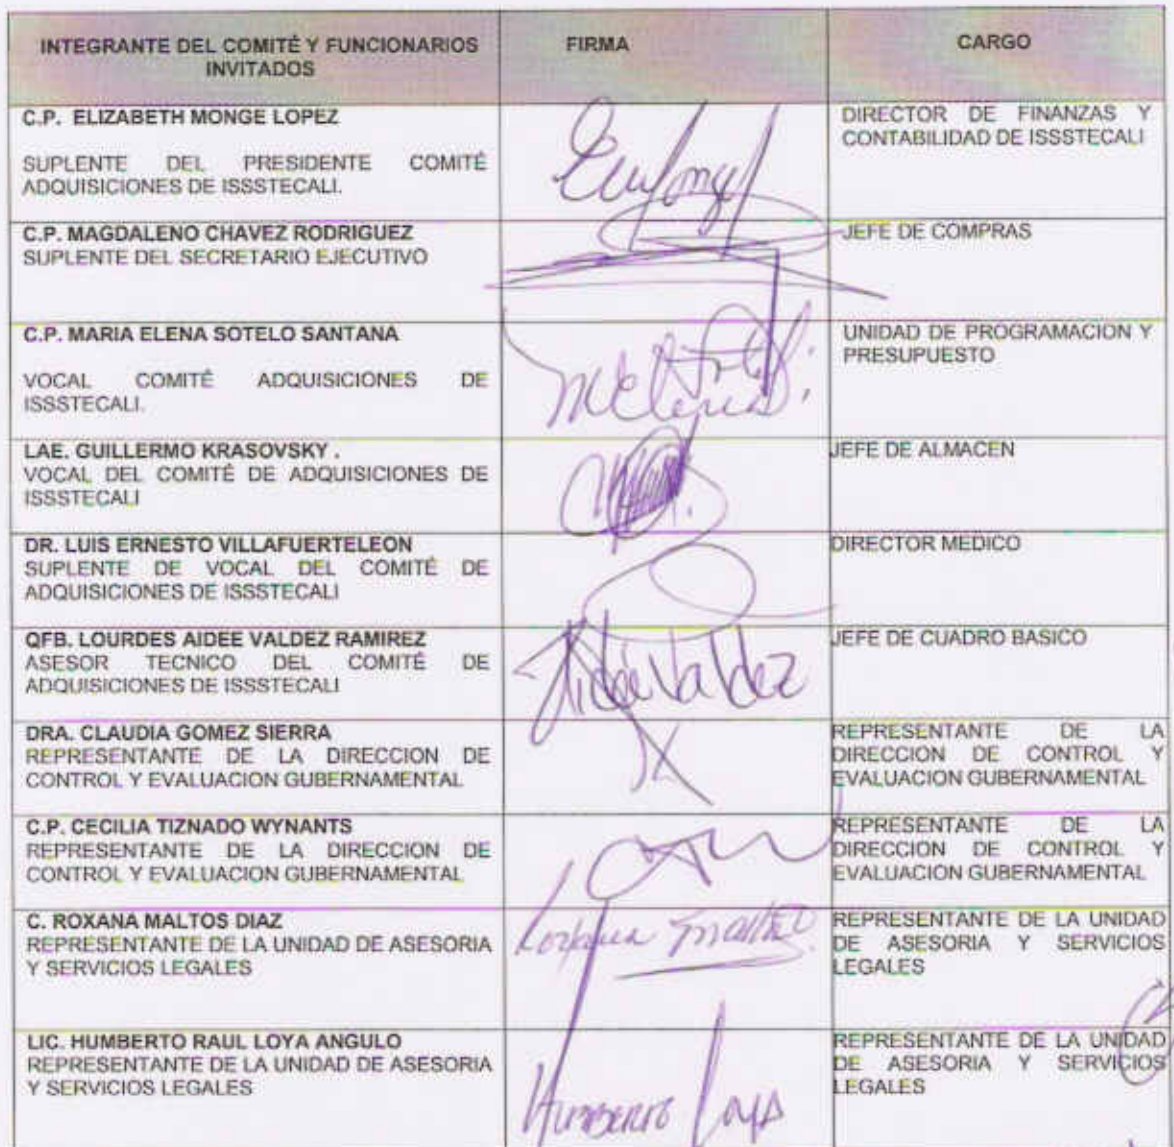 INTEGRANTE DEL COMITÉ Y FUNCIONARIOS
INVITADOS
FIRMA
CARGO
C.P. ELIZABETH MONGE LOPEZ
SUPLENTE DEL PRESIDENTE COMITÉ
ADQUISICIONES DE ISSSTECALI.
DIRECTOR DE FINANZAS Y
CONTABILIDAD DE ISSSTECALI
C.P. MAGDALENO CHAVEZ RODRIGUEZ
SUPLENTE DEL SECRETARIO EJECUTIVO
JEFE DE COMPRAS
C.P. MARIA ELENA SOTELO SANTANA
VOCAL COMITÉ ADQUISICIONES DE
ISSSTECALI.
UNIDAD DE PROGRAMACION Y
PRESUPUESTO
LAE. GUILLERMO KRASOVSKY .
VOCAL DEL COMITÉ DE ADQUISICIONES DE
ISSSTECALI
JEFE DE ALMACEN
DR. LUIS ERNESTO VILLAFUERTELEON
SUPLENTE DE VOCAL DEL COMITÉ DE
ADQUISICIONES DE ISSSTECALI
DIRECTOR MEDICO
QFB. LOURDES AIDEE VALDEZ RAMIREZ
ASESOR TECNICO DEL COMITÉ DE
ADQUISICIONES DE ISSSTECALI
Aidee Valdez
JEFE DE CUADRO BASICO
DRA. CLAUDIA GOMEZ SIERRA
REPRESENTANTE DE LA DIRECCION DE
CONTROL Y EVALUACION GUBERNAMENTAL
REPRESENTANTE DE LA
DIRECCION DE CONTROL Y
EVALUACION GUBERNAMENTAL
C.P. CECILIA TIZNADO WYNANTS
REPRESENTANTE DE LA DIRECCION DE
CONTROL Y EVALUACION GUBERNAMENTAL
REPRESENTANTE DE LA
DIRECCION DE CONTROL Y
EVALUACION GUBERNAMENTAL
C. ROXANA MALTOS DIAZ
REPRESENTANTE DE LA UNIDAD DE ASESORIA
Y SERVICIOS LEGALES
REPRESENTANTE DE LA UNIDAD
DE ASESORIA Y SERVICIOS
LEGALES
LIC. HUMBERTO RAUL LOYA ANGULO
REPRESENTANTE DE LA UNIDAD DE ASESORIA
Y SERVICIOS LEGALES
Humberto Loya
REPRESENTANTE DE LA UNIDAD
DE ASESORIA Y SERVICIOS
LEGALES